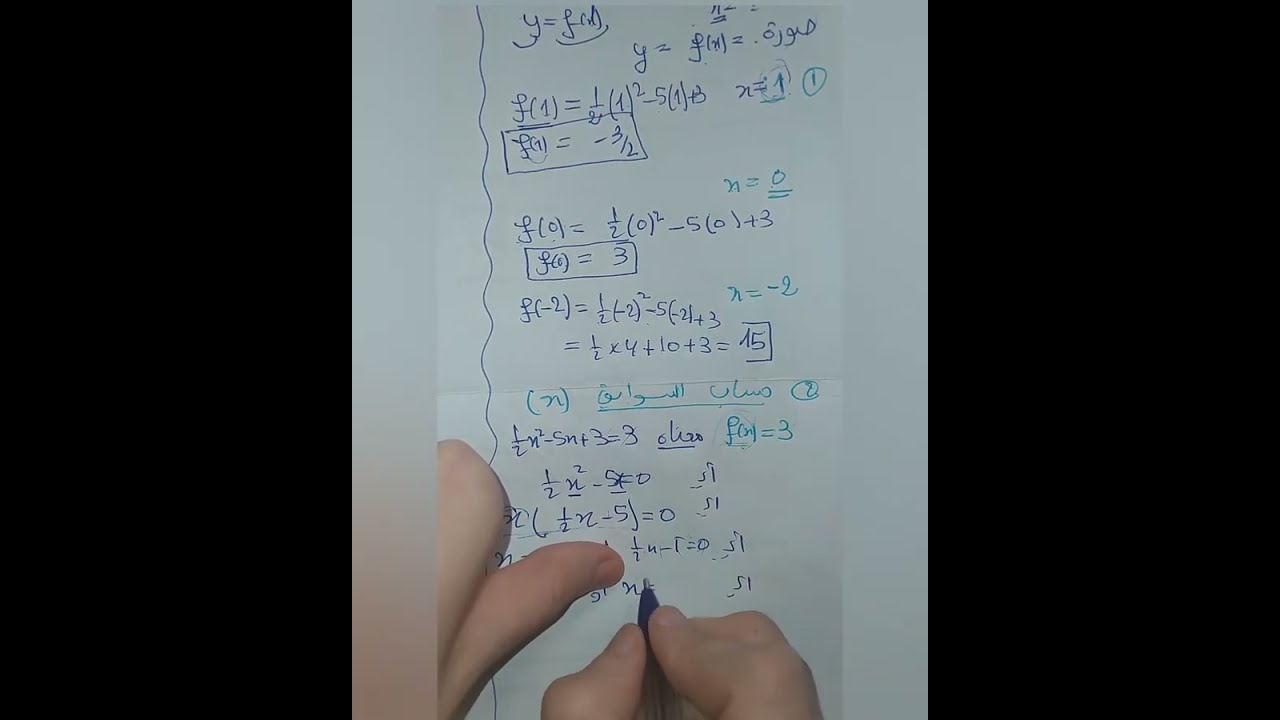 y = f(x)
y = f(x) = صورة
x = 1 ①
f(1) = ½(1)² - 5(1) + 3
f(1) = -3/2
x = 0
f(0) = ½(0)² - 5(0) + 3
f(0) = 3
x = -2
f(-2) = ½(-2)² - 5(-2) + 3
= ½ × 4 + 10 + 3 = 15
② حساب السوابق (x)
f(x) = 3 معناه ½x² - 5x + 3 = 3
أي ½x² - 5x = 0
أي x(½x - 5) = 0
أي ½x - 5 = 0
أي x =